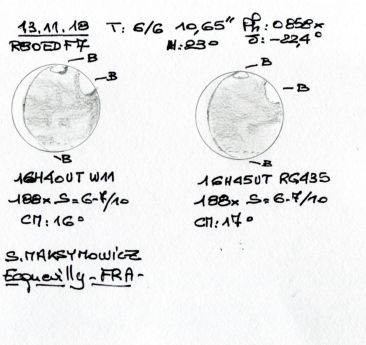 13.11.18 T: 6/6 10,65" Ph: 0858x
R80ED F7 H: 23° δ: -22,4°
B B
B B
B B
16H40UT W11 16H45UT RG435
188x S=6-7/10 188x S=6-7/10
CM: 16° CM: 17°
S. MAKSYMOWICZ
Ecquevilly - FRA -